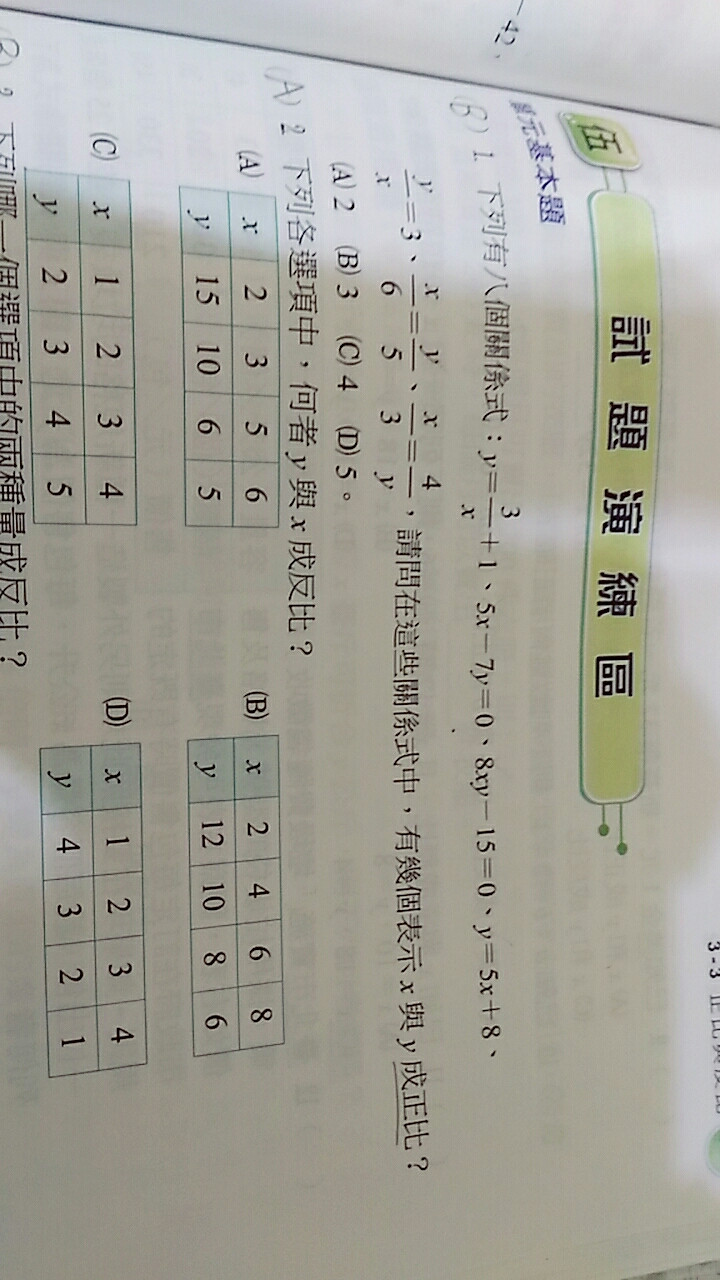 -42.
3-3
伍 試題演練區
單元基本題
(B) 1. 下列有八個關係式：y=3/x+1、5x-7y=0、8xy-15=0、y=5x+8、
y/x=3、x/6=y/5、x/3=4/y，請問在這些關係式中，有幾個表示x與y成正比？
(A) 2 (B) 3 (C) 4 (D) 5。
(A) 2. 下列各選項中，何者y與x成反比？
(A) x 2 3 5 6 (B) x 2 4 6 8
y 15 10 6 5 y 12 10 8 6
(C) x 1 2 3 4 (D) x 1 2 3 4
y 2 3 4 5 y 4 3 2 1
下列哪一個選項中的兩種量成反比？